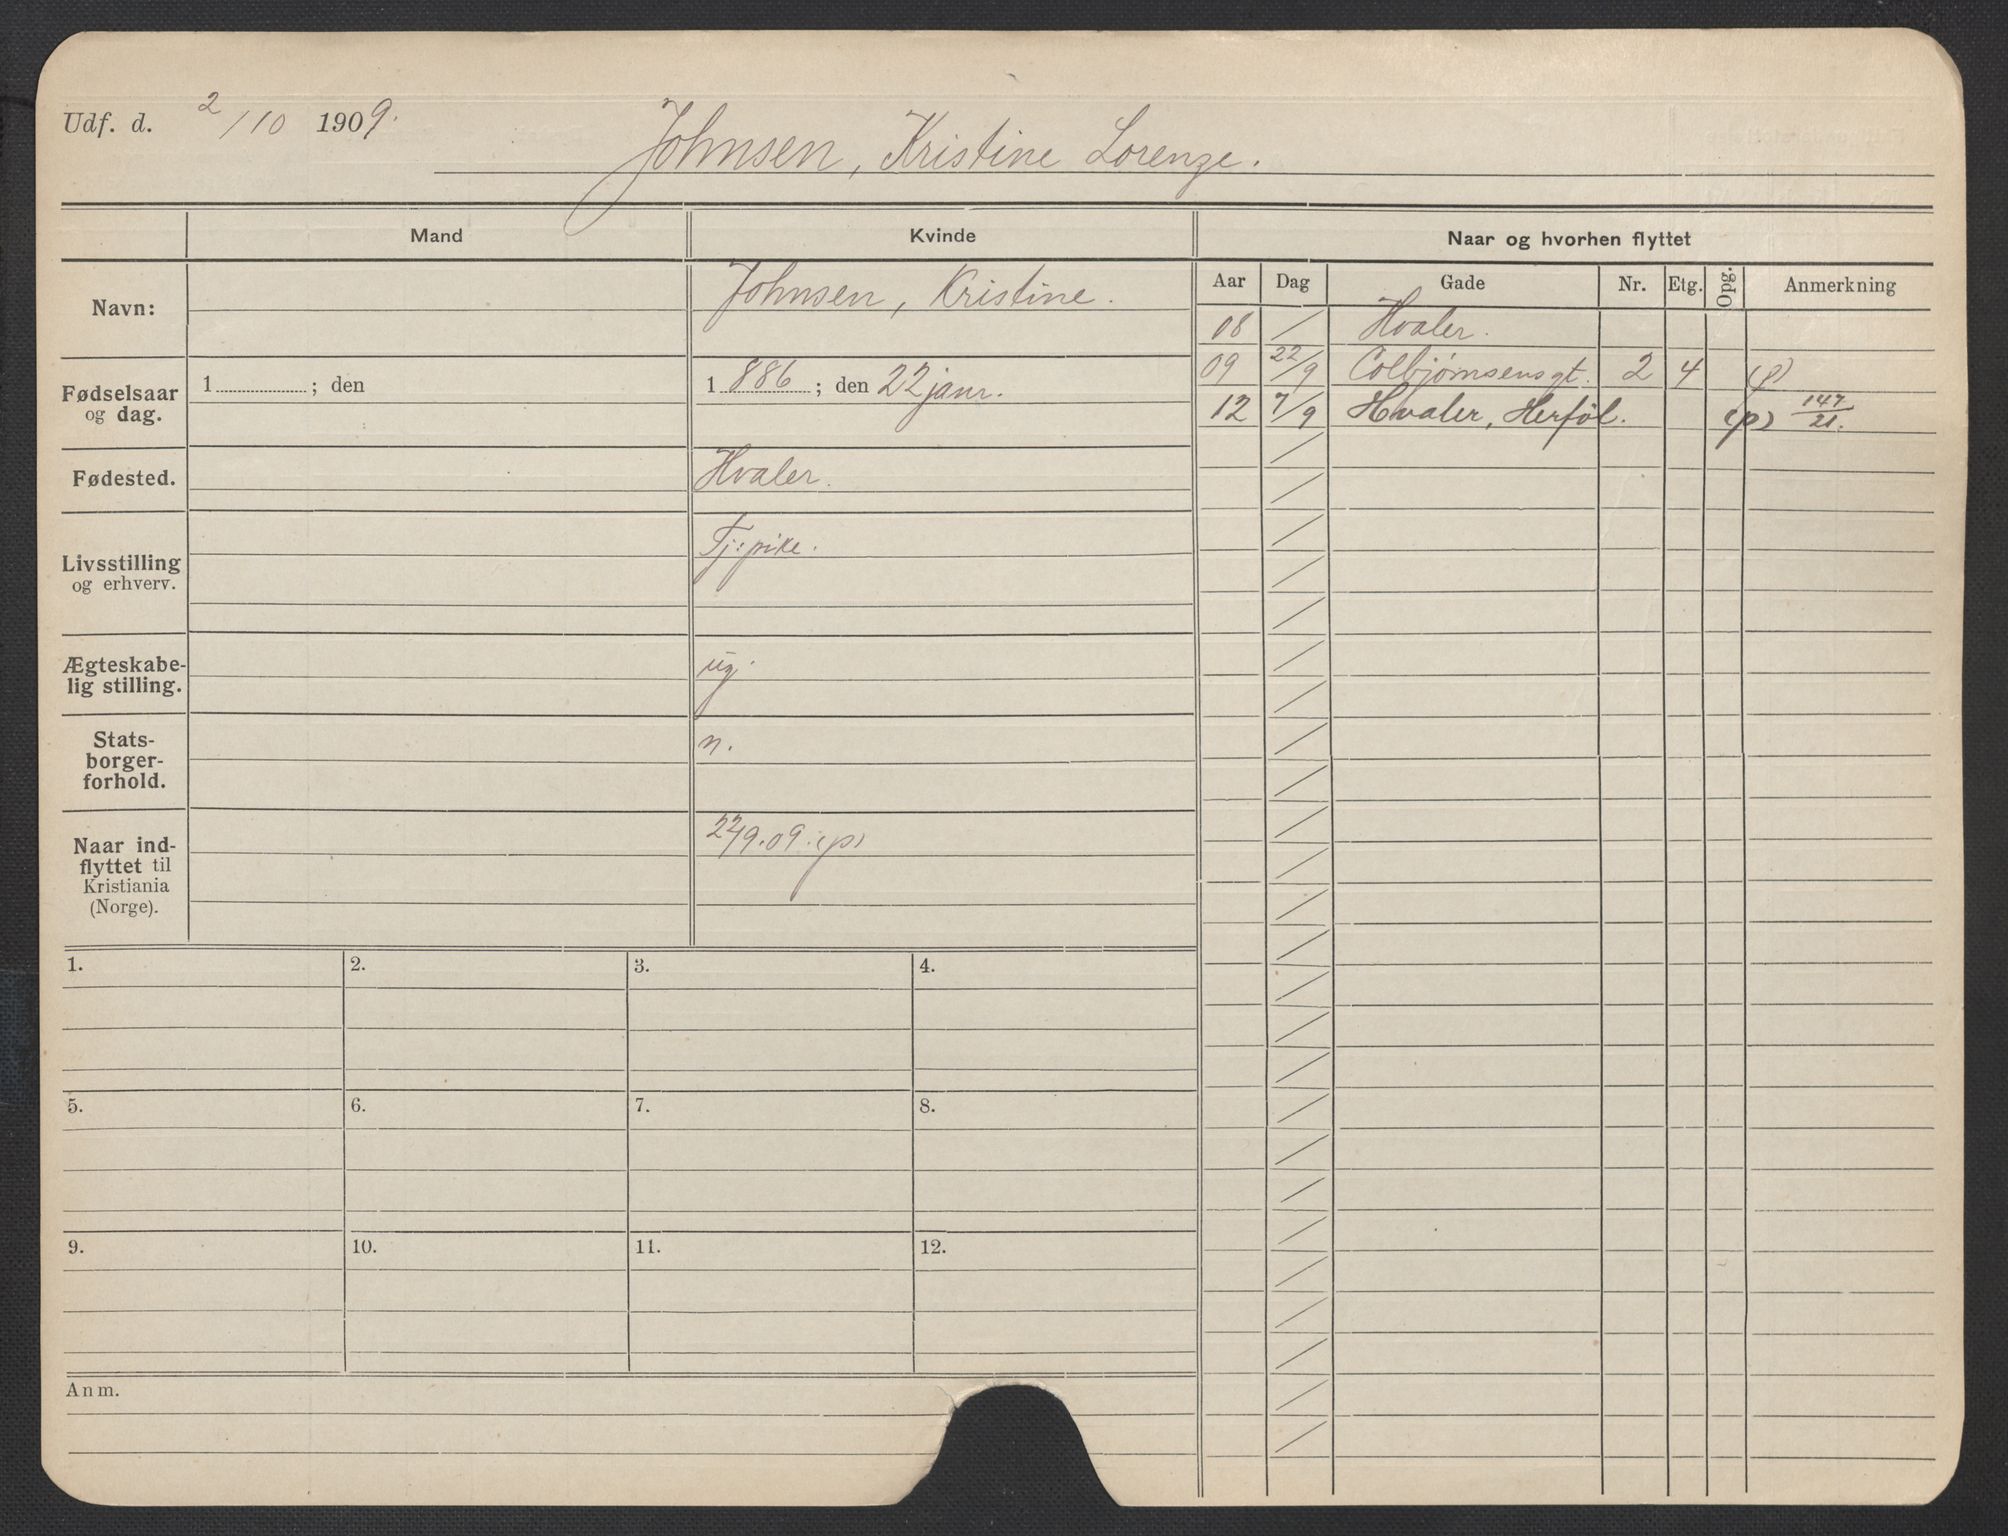 Udf. d. 2/10 1909.
Johnsen, Kristine Lorenze.
Mand
Kvinde
Naar og hvorhen flyttet
Navn:
Johnsen, Kristine.
Fødselsaar og dag.
1 ; den
1 886 ; den 22 janr.
Fødested.
Hvaler.
Livsstilling og erhverv.
Tj: pike.
Ægteskabe-
lig stilling.
ug.
Stats-
borger-
forhold.
n.
Naar ind-
flyttet til
Kristiania
(Norge).
22/9.09.(p)
Aar Dag Gade Nr. Etg. Opg. Anmerkning
08 / Hvaler.
09 22/9 Colbjørnsensgt. 2 4 (p)
12 7/9 Hvaler, Herføl. (p) 147/21.
1. 2. 3. 4.
5. 6. 7. 8.
9. 10. 11. 12.
Anm.